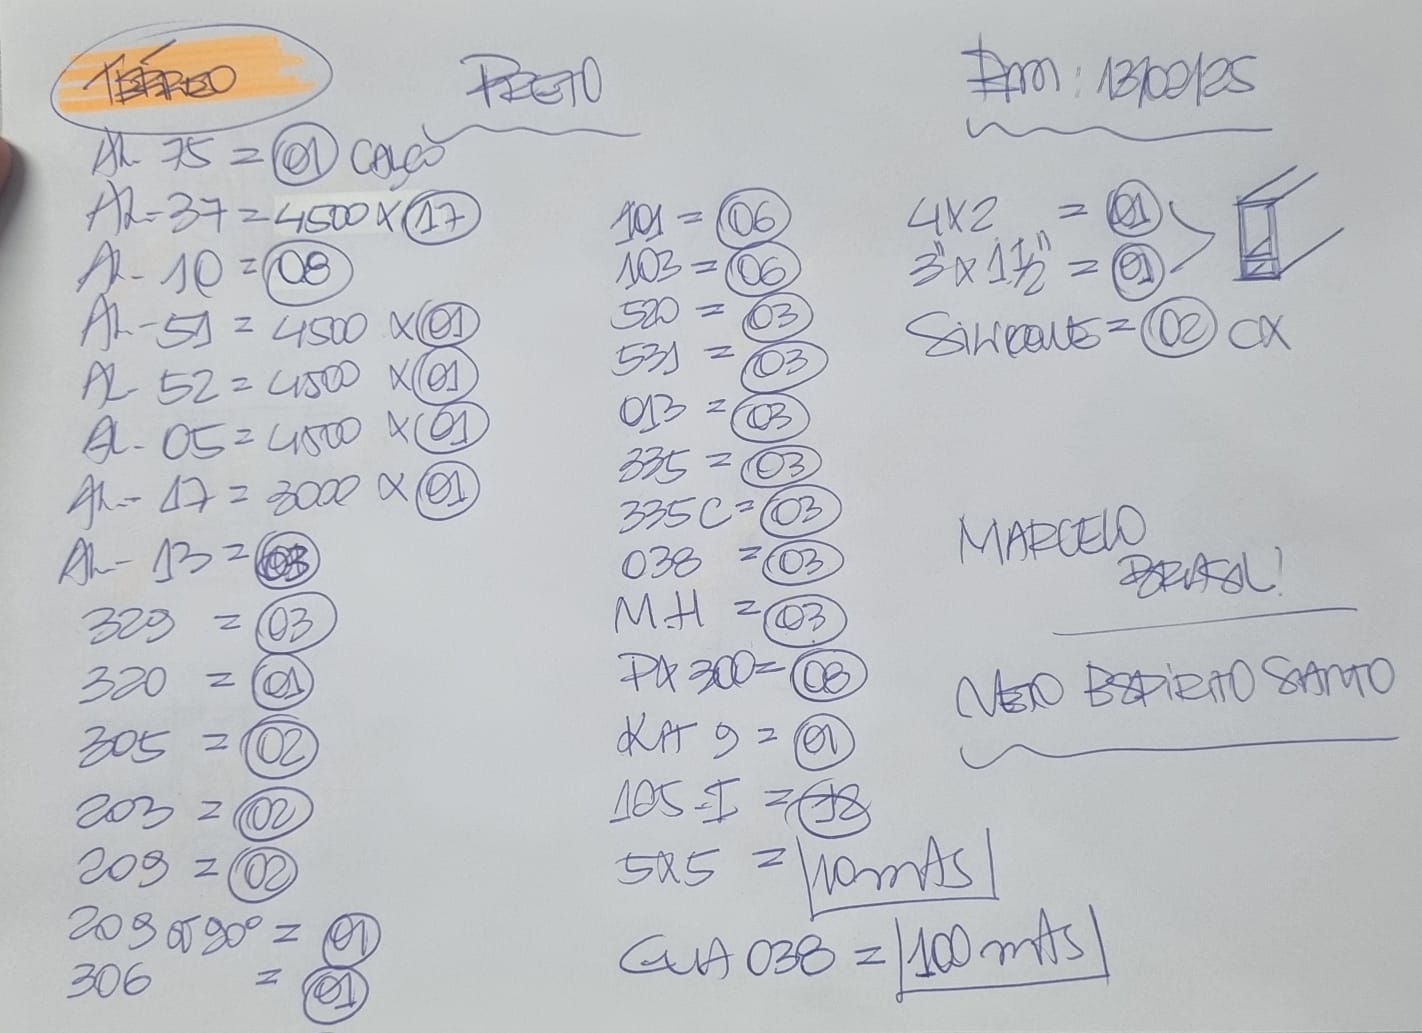 TÉRREO
PRETO
13/09/25
AL 75 = 01 CALÇO
AL-37 = 4500 X 17
AL-10 = 08
AL-51 = 4500 X 01
AL 52 = 4500 X 01
AL-05 = 4500 X 01
AL-17 = 3000 X 01
AL-13 = 03
329 = 03
320 = 01
305 = 02
203 = 02
209 = 02
209 90° = 01
306 = 01
101 = 06
103 = 06
520 = 03
531 = 03
013 = 03
335 = 03
335C = 03
038 = 03
M.H = 03
PX 300 = 08
KIT 9 = 01
105-I =
5X5 = 10 mts
GUA 038 = 100 mts
4X2 = 01
3" X 1 1/2" = 01
SILICONE = 02 CX
MARCELO
BRASIL!
ESPIRITO SANTO